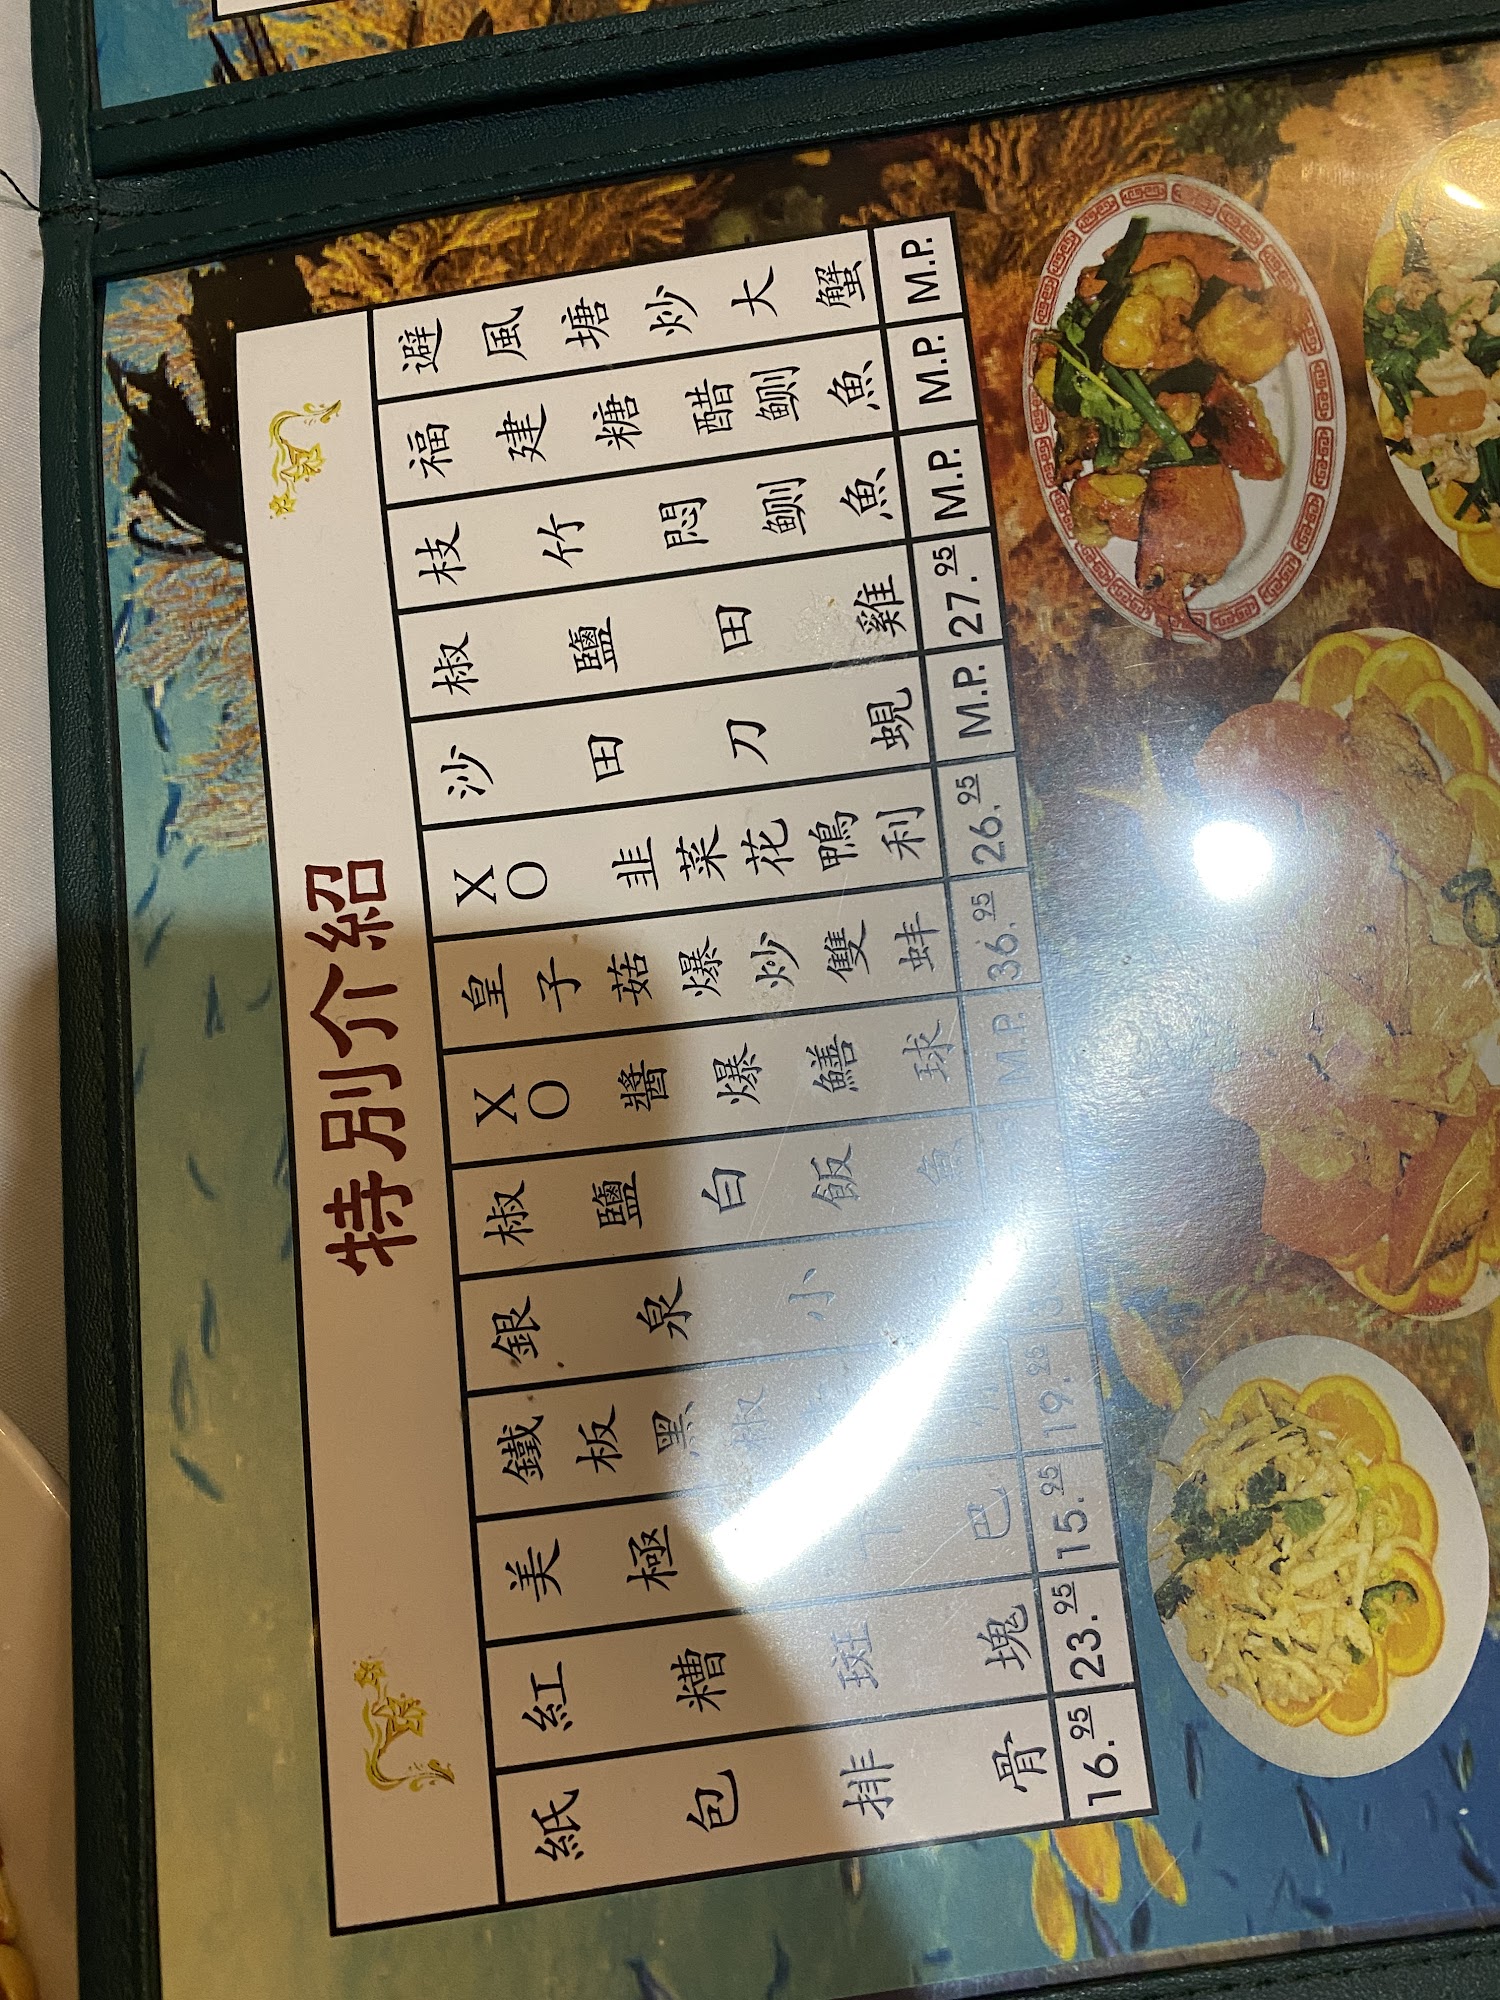 特別介紹
避風塘炒大蟹 M.P.
福建糖醋鰂魚 M.P.
枝竹悶鰂魚 M.P.
椒鹽田雞 27.95
沙田刀蜆 M.P.
XO韭菜花鴨利 26.95
皇子菇爆炒雙蚌 36.95
XO醬爆鱔球 M.P.
椒鹽白飯魚
銀泉小
鐵板黑椒 19.95
美極巴 15.95
紅糟斑塊 23.95
紙包排骨 16.95